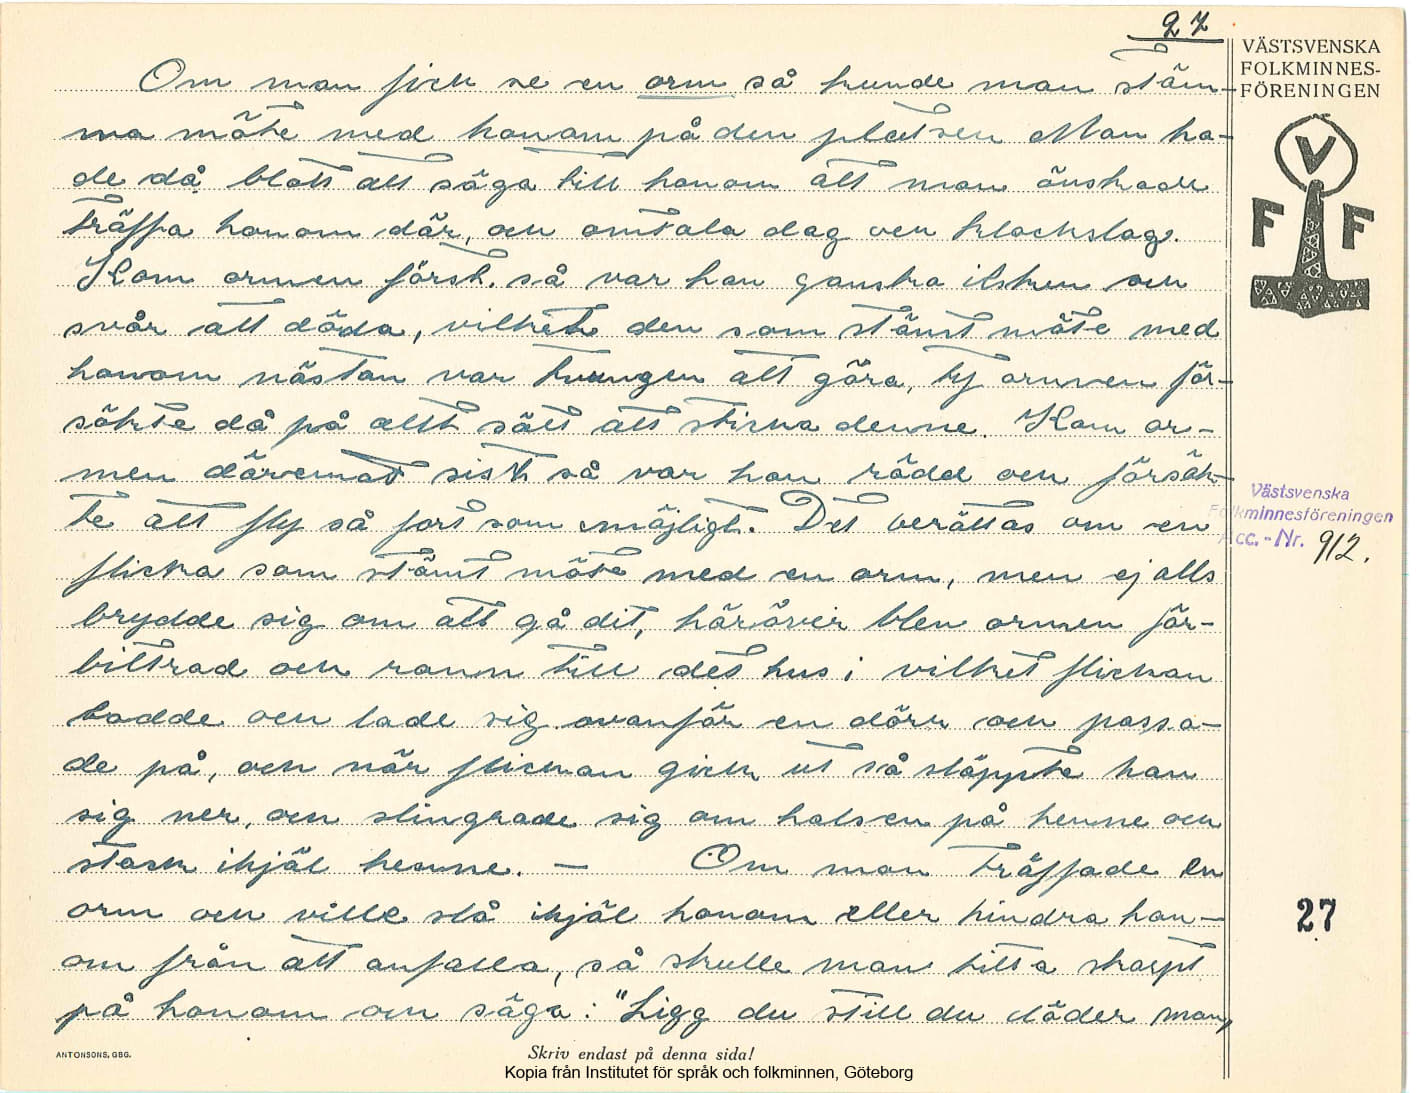 27
VÄSTSVENSKA
FOLKMINNES-
FÖRENINGEN
V
F F
Om man fick se en orm så kunde man stäm-
ma möte med honom på den platsen Man ha-
de då blott att säga till honom att man önskade
träffa honom där, och omtala dag och klockslag.
Kom ormen först. så var han ganska ilsken och
svår att döda, vilket den som stämt möte med
honom nästan var tvungen att göra, ty ormen för-
sökte då på allt sätt att sticka denne. Kom or-
men däremot sist så var han rädd och försök-
te att fly så fort som möjligt. Det berättas om en
flicka som stämt möte med en orm, men ej alls
brydde sig om att gå dit, häröver blev ormen för-
bittrad och rann till det hus i vilket flickan
bodde och lade sig ovanför en dörr och passa-
de på, och när flickan gick ut så släppte han
sig ner, och slingrade sig om halsen på henne och
stack ihjäl henne. — Om man träffade en
orm och ville slå ihjäl honom eller hindra hon-
om från att anfalla, så skulle man titta skarpt
på honom och säga: "Ligg du still du döder man,
Västsvenska
Folkminnesföreningen
Acc.-Nr. 912.
27
ANTONSONS, GBG.
Skriv endast på denna sida!
Kopia från Institutet för språk och folkminnen, Göteborg